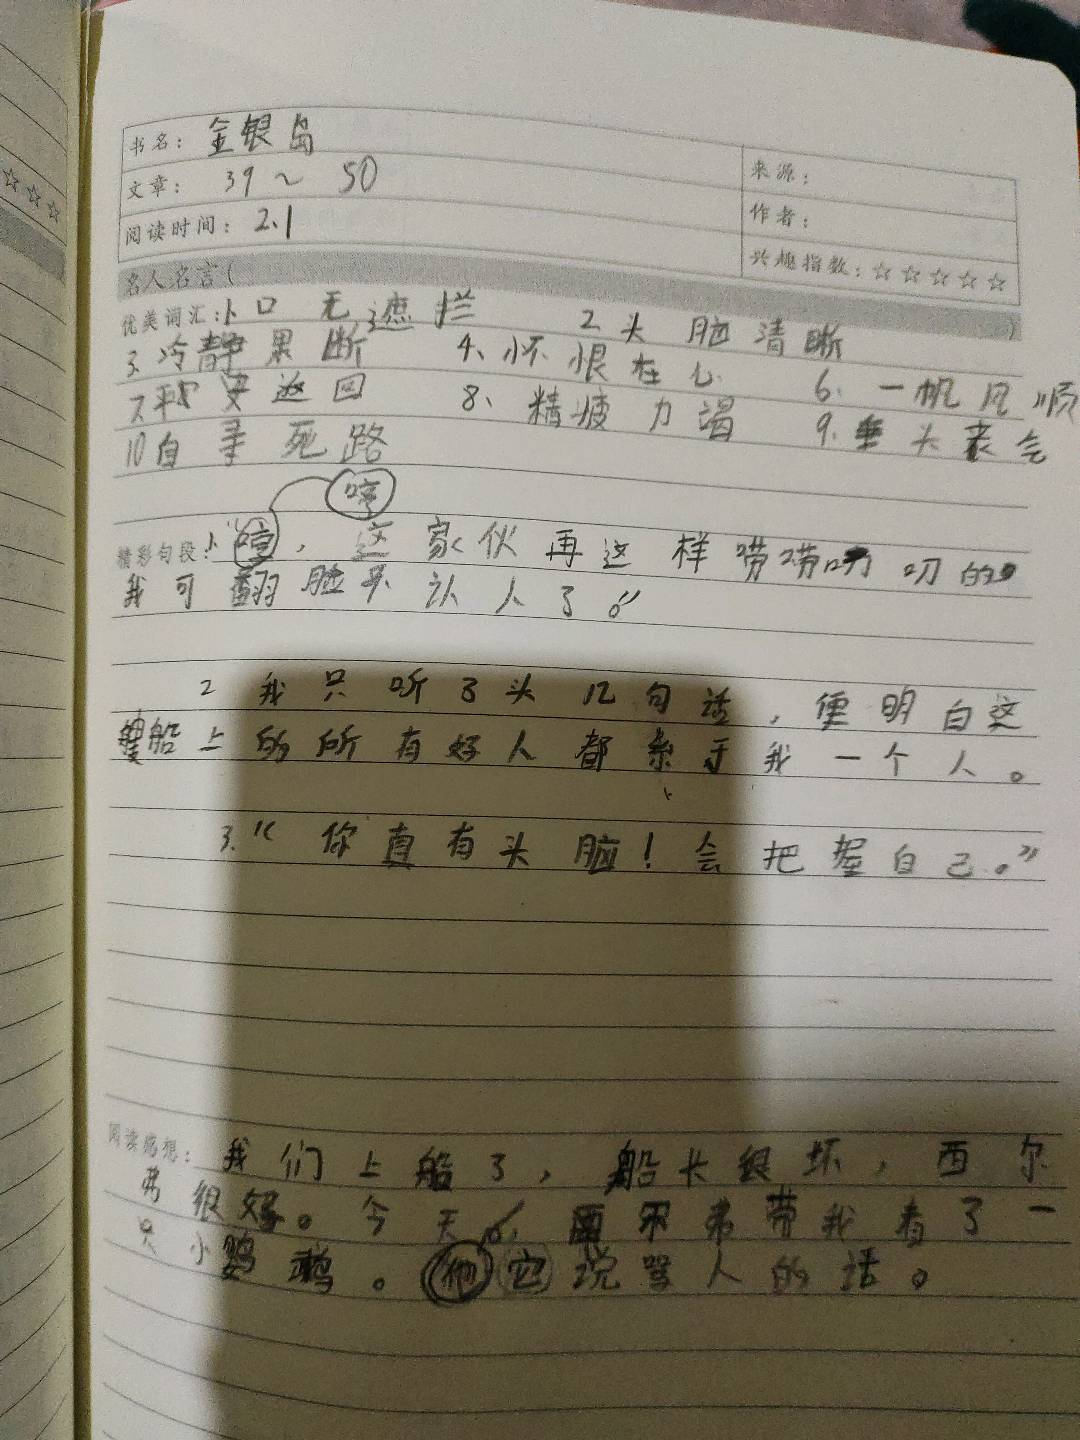 书名：金银岛
来源：
文章：39～50
作者：
阅读时间：2.1
兴趣指数：☆☆☆☆☆
名人名言（ ）
优美词汇：1、口无遮拦 2、头脑清晰
3、冷静果断 4、怀恨在心 6、一帆风顺
7、平安返回 8、精疲力竭 9、垂头丧气
10自寻死路
哼
精彩句段：1、“，这家伙再这样唠唠叨叨的
我可翻脸不认人了。”
2 我只听了头几句话，便明白这
艘船上的所有好人都系于我一个人。
3.“你真有头脑！会把握自己。”
阅读感想：我们上船了，船长很坏，西尔
弗很好。今天，西尔弗带我看了一
只小鹦鹉。他它说骂人的话。